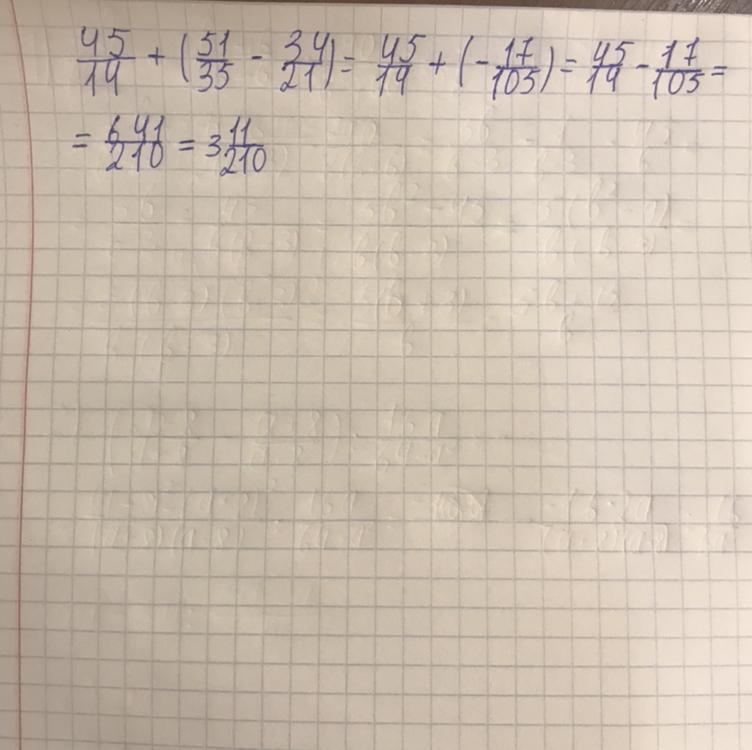 45/14 + (51/35 - 34/21) = 45/14 + (-17/105) = 45/14 - 17/105 =
= 641/210 = 3 11/210